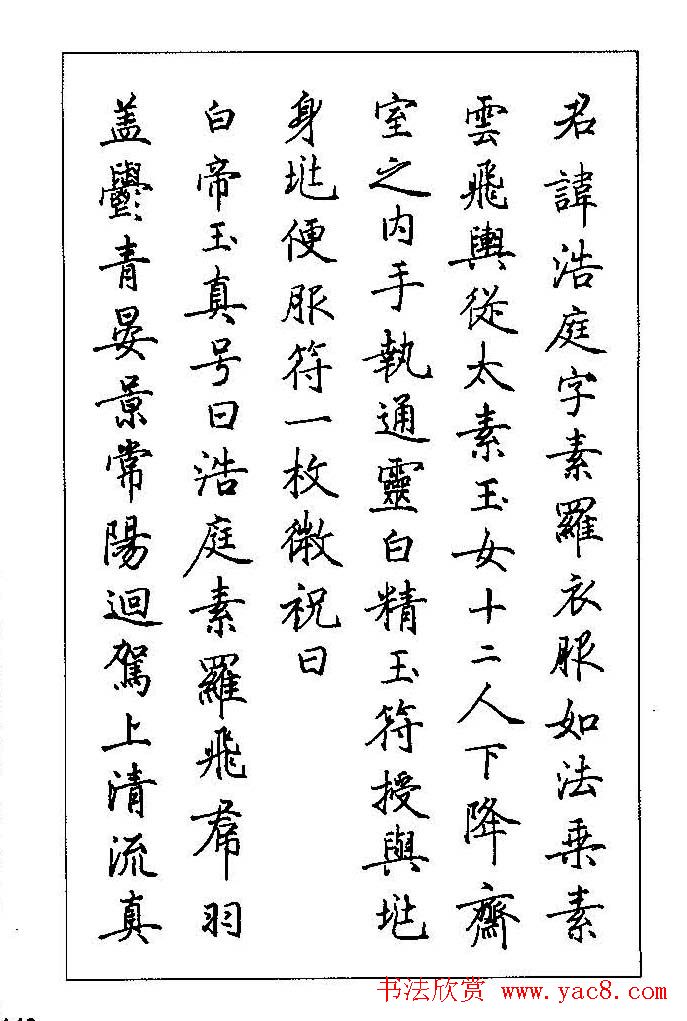 君諱浩庭字素羅衣服如法乗素
雲飛輿從太素玉女十二人下降齋
室之内手執通靈白精玉符授與垗
身垗便服符一枚微祝曰
白帝玉真号曰浩庭素羅飛帬羽
盖鬱青晏景常陽迴駕上清流真
书法欣赏 www.yac8.com